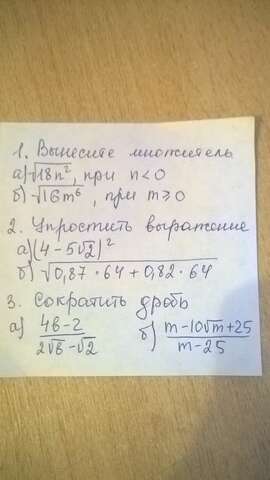 1. Вынесите множитель
а) √18n², при n<0
б) √16m⁶, при m⩾0
2. Упростить выражение
а) (4-5√2)²
б) √0,87·64+0,82·64
3. Сократить дробь
а) 4в-2 / 2√в-√2 б) m-10√m+25 / m-25